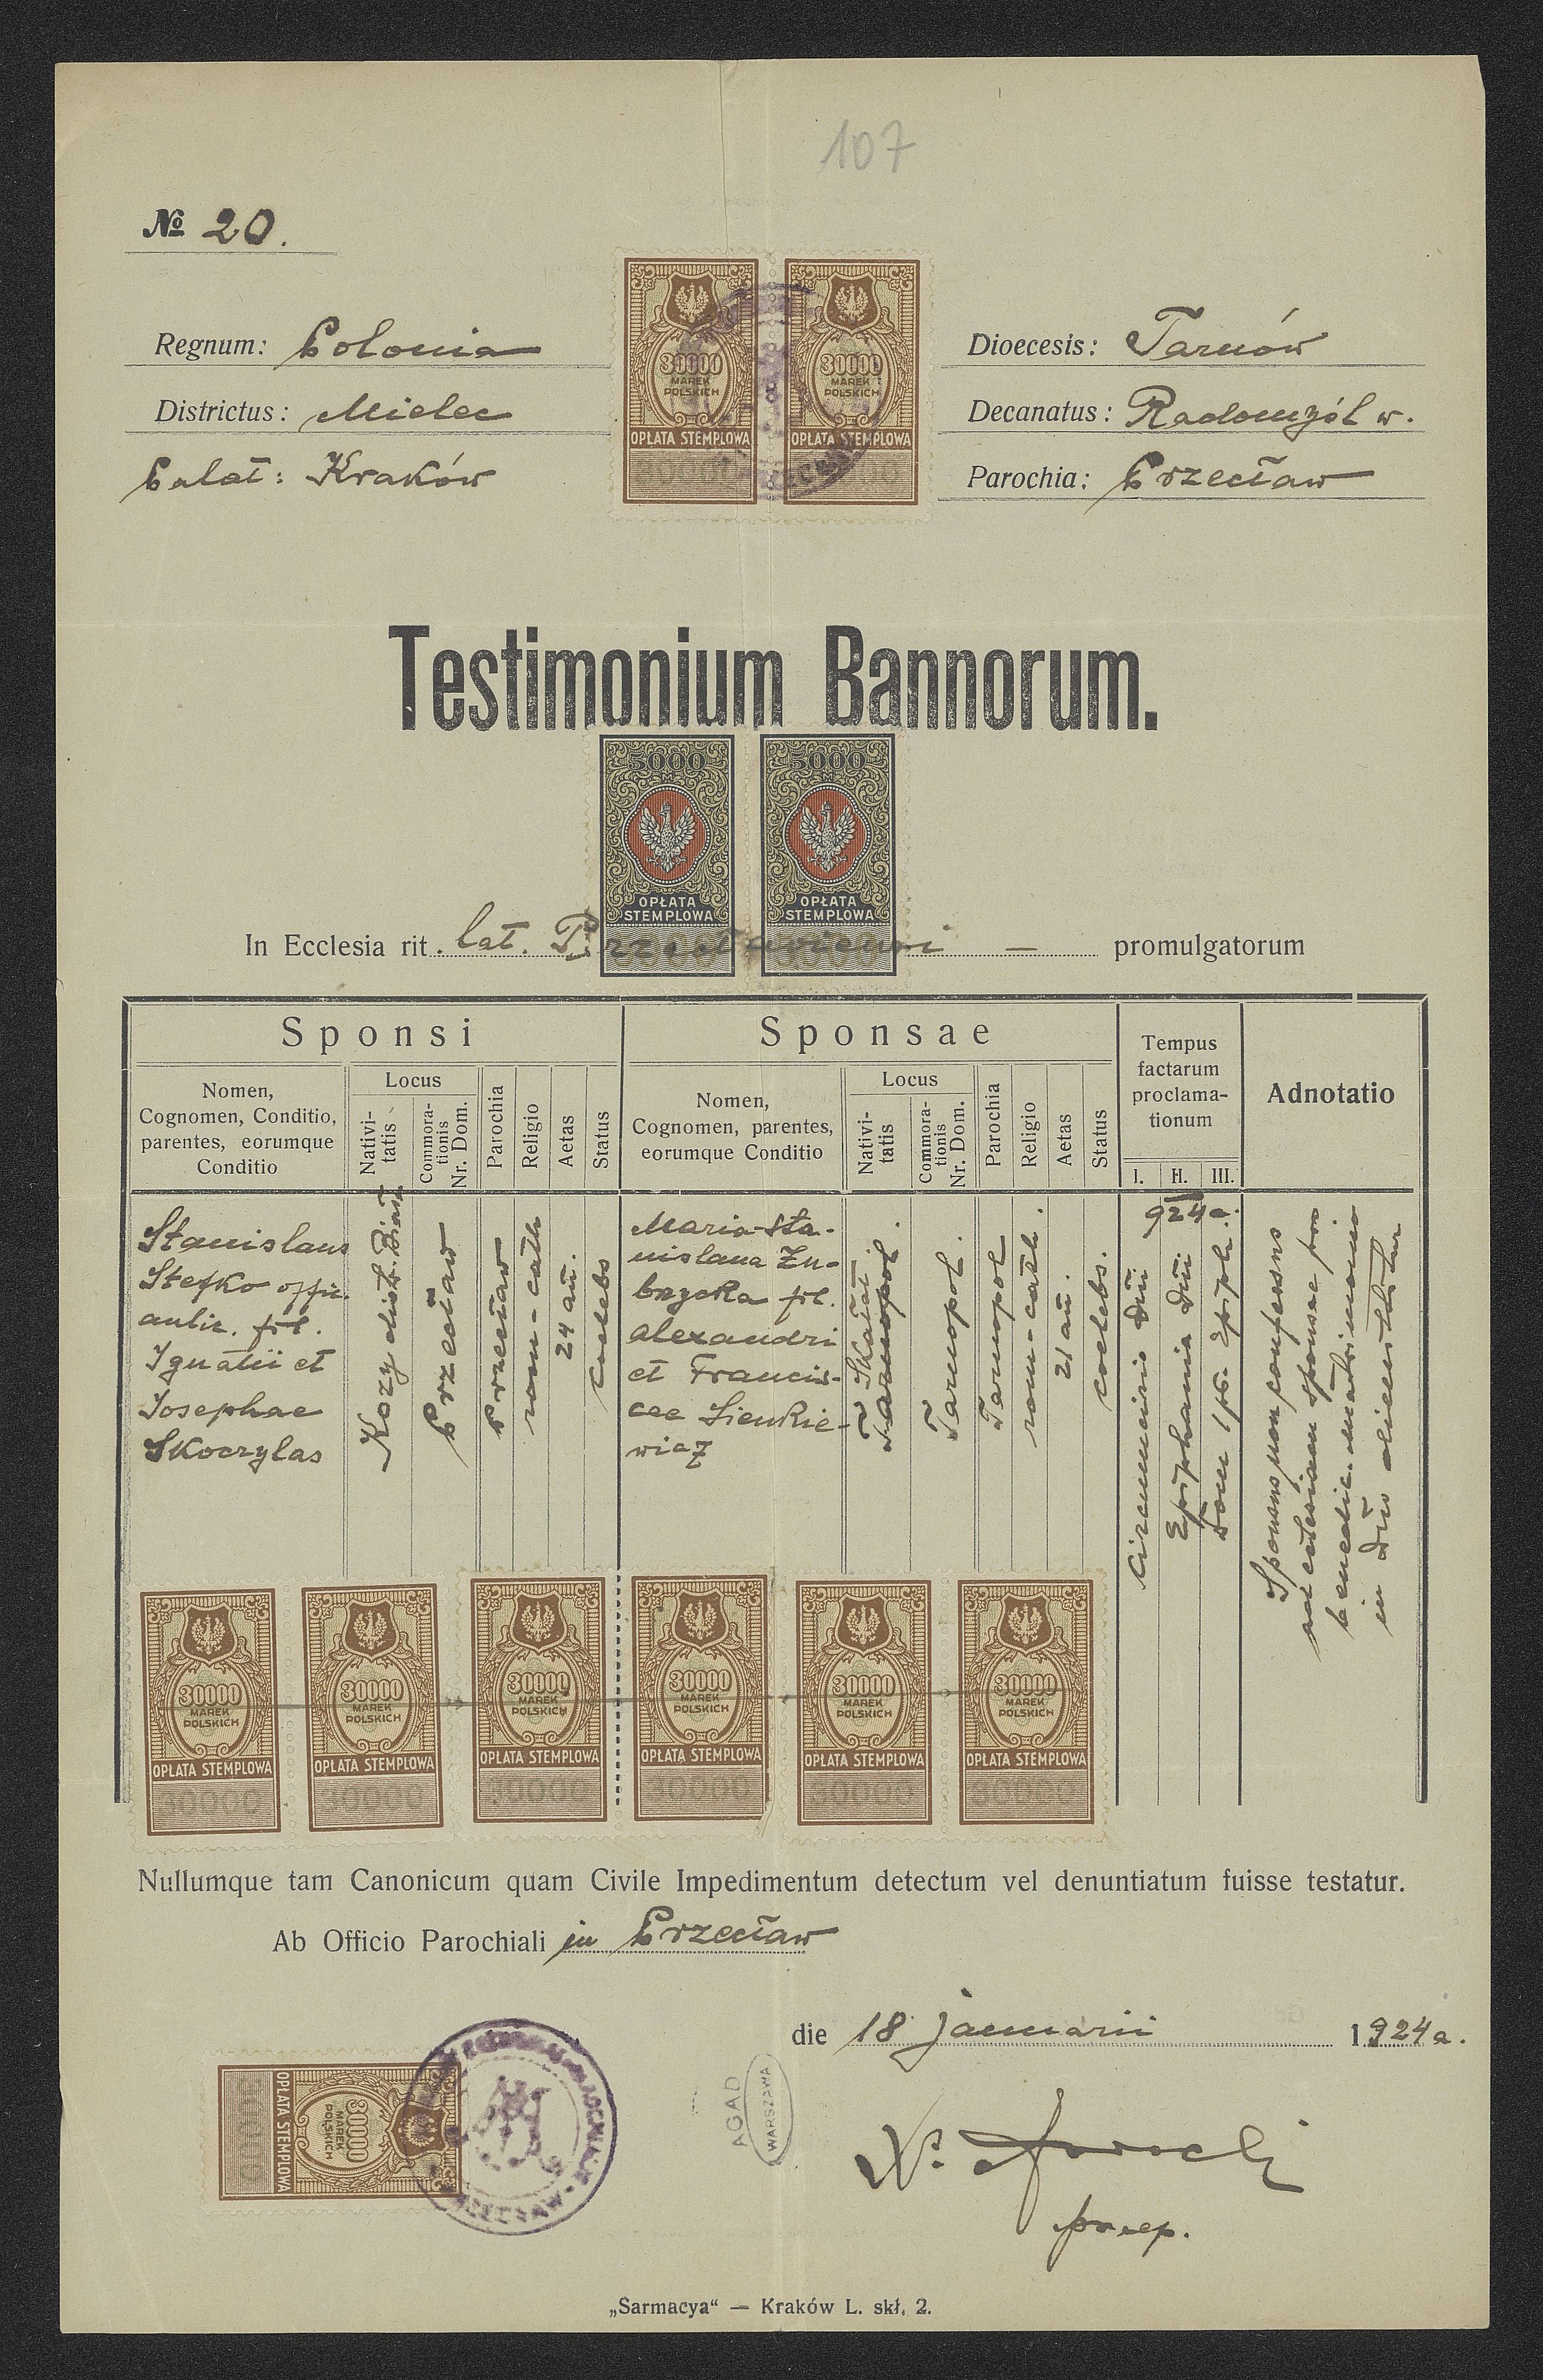 107
№ 20.
Regnum: Polonia
Districtus: Mielec
Palat: Kraków
30000
MAREK
POLSKICH
OPŁATA STEMPLOWA
30000
MAREK
POLSKICH
OPŁATA STEMPLOWA
Dioecesis: Tarnów
Decanatus: Radomyśl w.
Parochia: Przecław
Testimonium Bannorum.
5000
M
OPŁATA
STEMPLOWA
5000
M
OPŁATA
STEMPLOWA
In Ecclesia rit. lat. Przecłaviensi — promulgatorum
Sponsi
Nomen,
Cognomen, Conditio,
parentes, eorumque
Conditio
Locus
Nativi-
tatis
Commora-
tionis
Nr. Dom.
Parochia
Religio
Aetas
Status
Sponsae
Nomen,
Cognomen, parentes,
eorumque Conditio
Locus
Nativi-
tatis
Commora-
tionis
Nr. Dom.
Parochia
Religio
Aetas
Status
Tempus
factarum
proclama-
tionum
I. II. III.
Adnotatio
Stanislaus
Stefko offic.
aulic. fil.
Ignatii et
Josephae
Skoczylas
Kozy distr. Biała
Przecław
Przecław
rom-cath
24 an.
coelebs
Maria Sta-
nislava Zu-
brzycka fil.
Alexandri
et Francis-
cae Sienkie-
wicz
Skałat
Tarnopol
Tarnopol.
Tarnopol
rom-cath.
21 an.
coelebs.
924 a.
Circumcisio Dni
Epiphania Dni
Dom 1 p. Epiph.
Sponsus non confessus
ad ecclesiam sponsae pro
benedic. matrimonio
in Dno
30000
MAREK
POLSKICH
OPŁATA STEMPLOWA
30000
30000
MAREK
POLSKICH
OPŁATA STEMPLOWA
30000
30000
MAREK
POLSKICH
OPŁATA STEMPLOWA
30000
30000
MAREK
POLSKICH
OPŁATA STEMPLOWA
30000
30000
MAREK
POLSKICH
OPŁATA STEMPLOWA
30000
30000
MAREK
POLSKICH
OPŁATA STEMPLOWA
30000
Nullumque tam Canonicum quam Civile Impedimentum detectum vel denuntiatum fuisse testatur.
Ab Officio Parochiali in Przecław
die 18 januarii 1924 a.
30000
MAREK
POLSKICH
OPŁATA STEMPLOWA
AGAD
WARSZAWA
praep.
„Sarmacya“ — Kraków L. skł. 2.